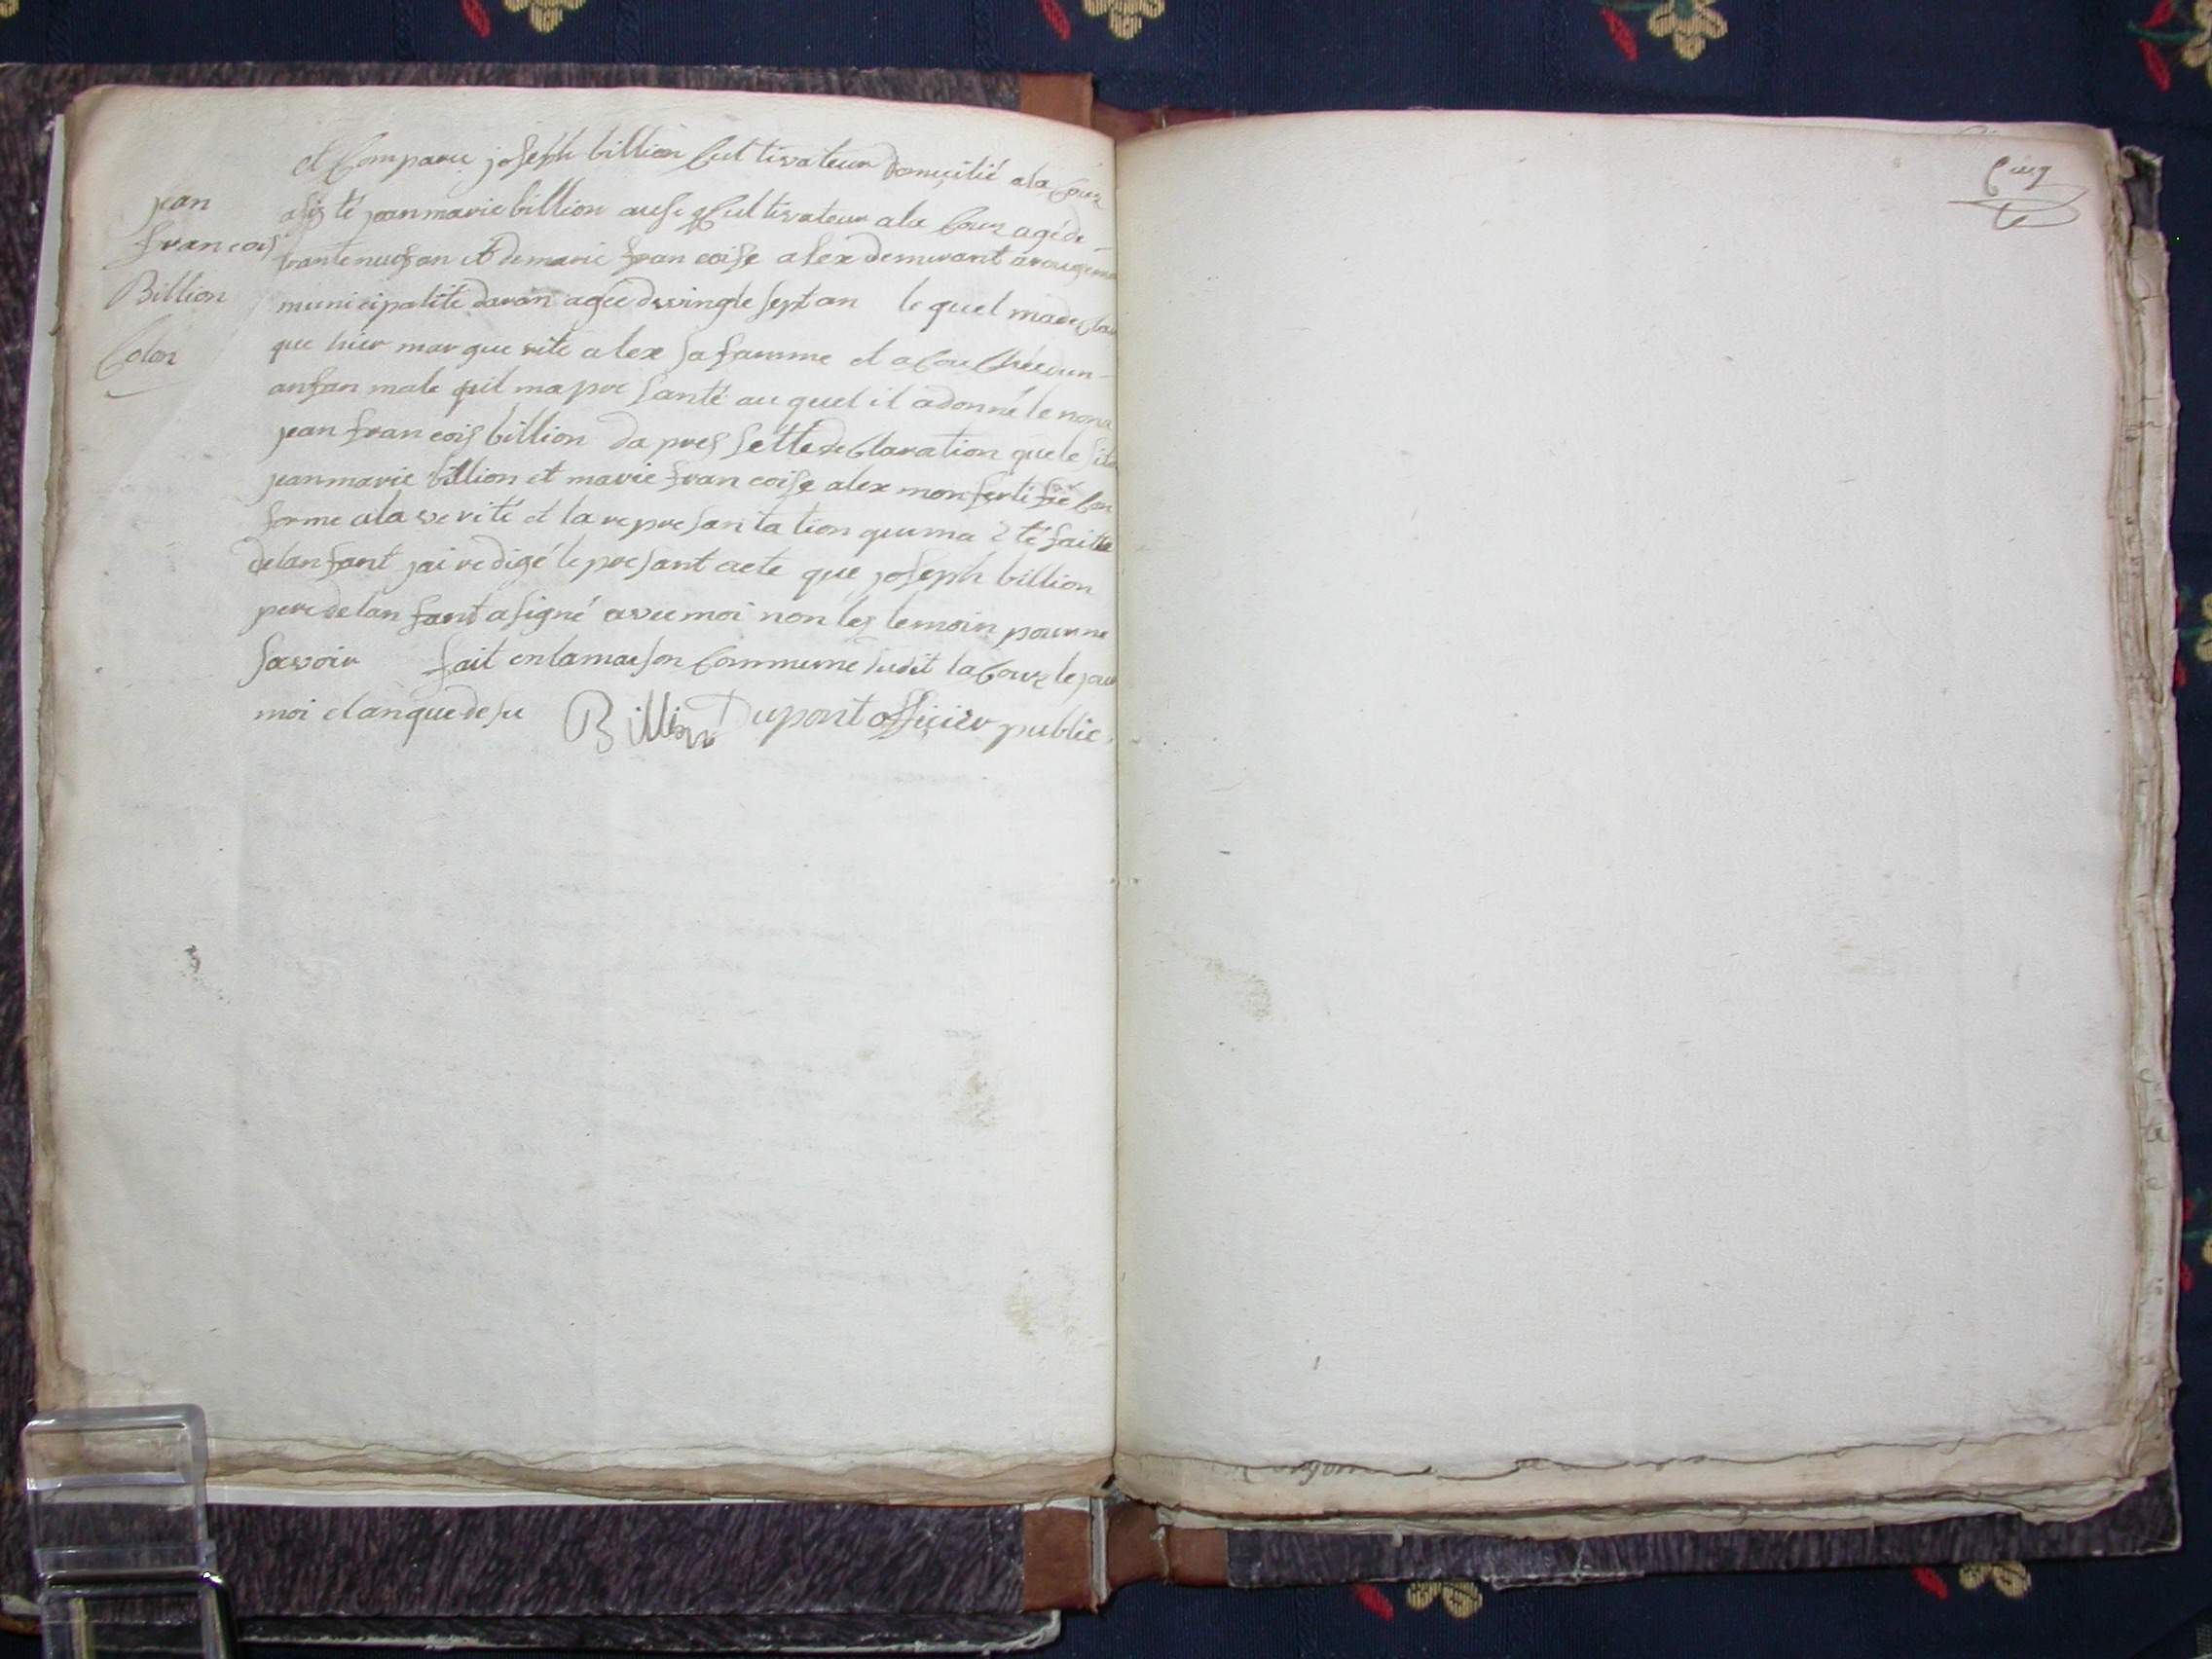 jean
francois
Billion
Colon
et Comparu joseph billion Cultivateur domicilié ala Cour
asisté jeanmarie billion ausi Cultivateur ala Cour agé de
trante neuf an et de marie francoise alex demurant a
municipalité daran agée de vingte sept an le quel ma decla
que hier marguerite alex sa famme et a Couchée dun
anfan male quil ma presanté auquel il a donné le nom
jean francois billion dapres sette declaration que le
jeanmarie billion et marie francoise alex mon sertifié Con
forme ala verité et la represantation qui ma été faitte
delanfant jai redigé le presant acte que joseph billion
pere delanfant a signé avec moi non les temoin pour ne
savoir fait en la maison Commune sudit la Cour le jour
moi et an que desu Billion Dupont officier public.
Cinq